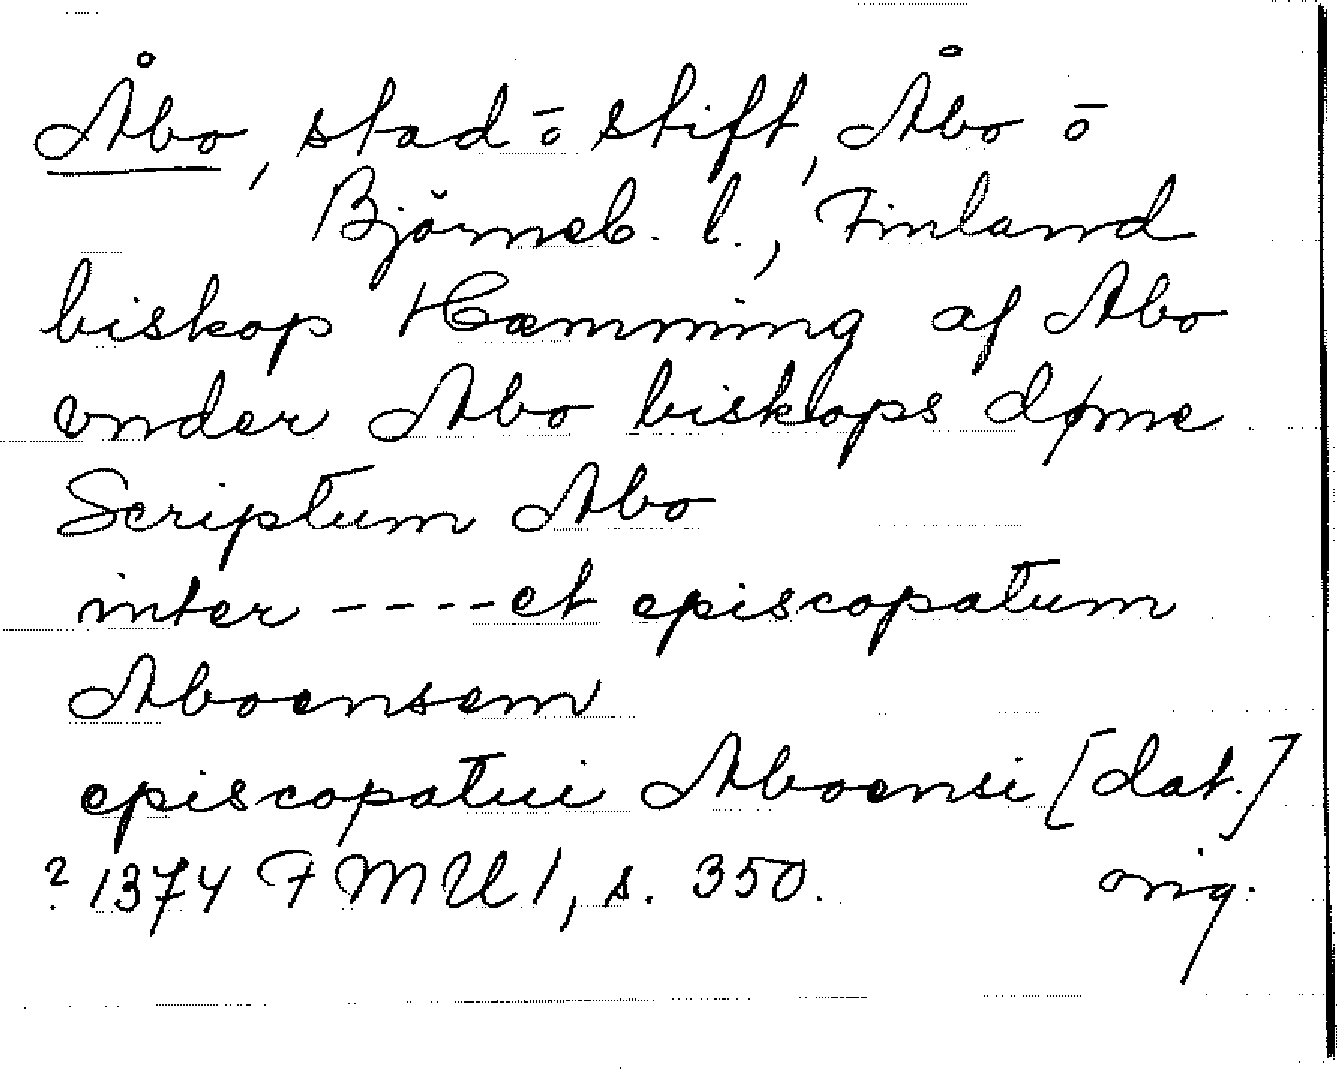 Åbo, stad ō stift, Åbo ō
Björneb. l., Finland
biskop Hemming af Abo
vnder Abo biskops døme
Scriptum Abo
inter ---- et episcopatum
Aboensem
episcopatui Aboensi [dat.]
? 1374 FMU 1, s. 350. orig.